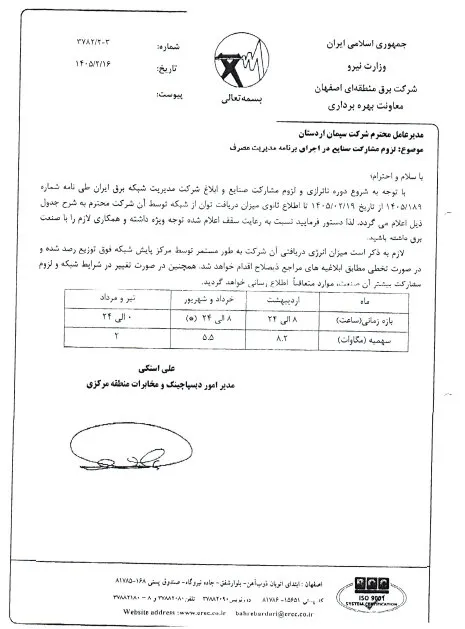 جمهوری اسلامی ایران
وزارت نیرو
شرکت برق منطقه‌ای اصفهان
معاونت بهره برداری
بسمه‌تعالی
شماره: ۳۷۸۲/۲-۳
تاریخ: ۱۴۰۵/۲/۱۶
پیوست:
مدیرعامل محترم شرکت سیمان اردستان
موضوع: لزوم مشارکت صنایع در اجرای برنامه مدیریت مصرف
با سلام و احترام؛
با توجه به شروع دوره ناترازی و لزوم مشارکت صنایع و ابلاغ شرکت مدیریت شبکه برق ایران طی نامه شماره
۱۴۰۵/۱۸۹ از تاریخ ۱۴۰۵/۰۲/۱۹ تا اطلاع ثانوی میزان دریافت توان از شبکه توسط آن شرکت محترم به شرح جدول
ذیل اعلام می گردد. لذا دستور فرمایید نسبت به رعایت سقف اعلام شده توجه ویژه داشته و همکاری لازم را با صنعت
برق داشته باشید.
لازم به ذکر است میزان انرژی دریافتی آن شرکت به طور مستمر توسط مرکز پایش شبکه فوق توزیع رصد شده و
در صورت تخطی مطابق ابلاغیه های مراجع ذیصلاح اقدام خواهد شد. همچنین در صورت تغییر در شرایط شبکه و لزوم
مشارکت بیشتر آن صنعت، موارد متعاقباً اطلاع رسانی خواهد گردید.
ماه اردیبهشت خرداد و شهریور تیر و مرداد
بازه زمانی(ساعت) ۸ الی ۲۴ ۸ الی ۲۴ (*) ۰ الی ۲۴
سهمیه (مگاوات) ۸.۲ ۵.۵ ۲
علی اسنکی
مدیر امور دیسپاچینگ و مخابرات منطقه مرکزی
اصفهان: ابتدای اتوبان ذوب‌آهن- بلوارشفق- جاده نیروگاه- صندوق پستی ۱۶۸-۸۱۷۸۵
کد پستی ۱۵۶۵۱-۸۱۷۸۶ دورنویس ۳۷۸۸۲۰۹۰ تلفن:۳۷۸۸۲۰۸۱ و ۸-۳۷۸۸۲۱۸۰
Website address :www.erec.co.ir bahrebardari@erec.co.ir
ISO 9001
SYSTEM CERTIFICATION